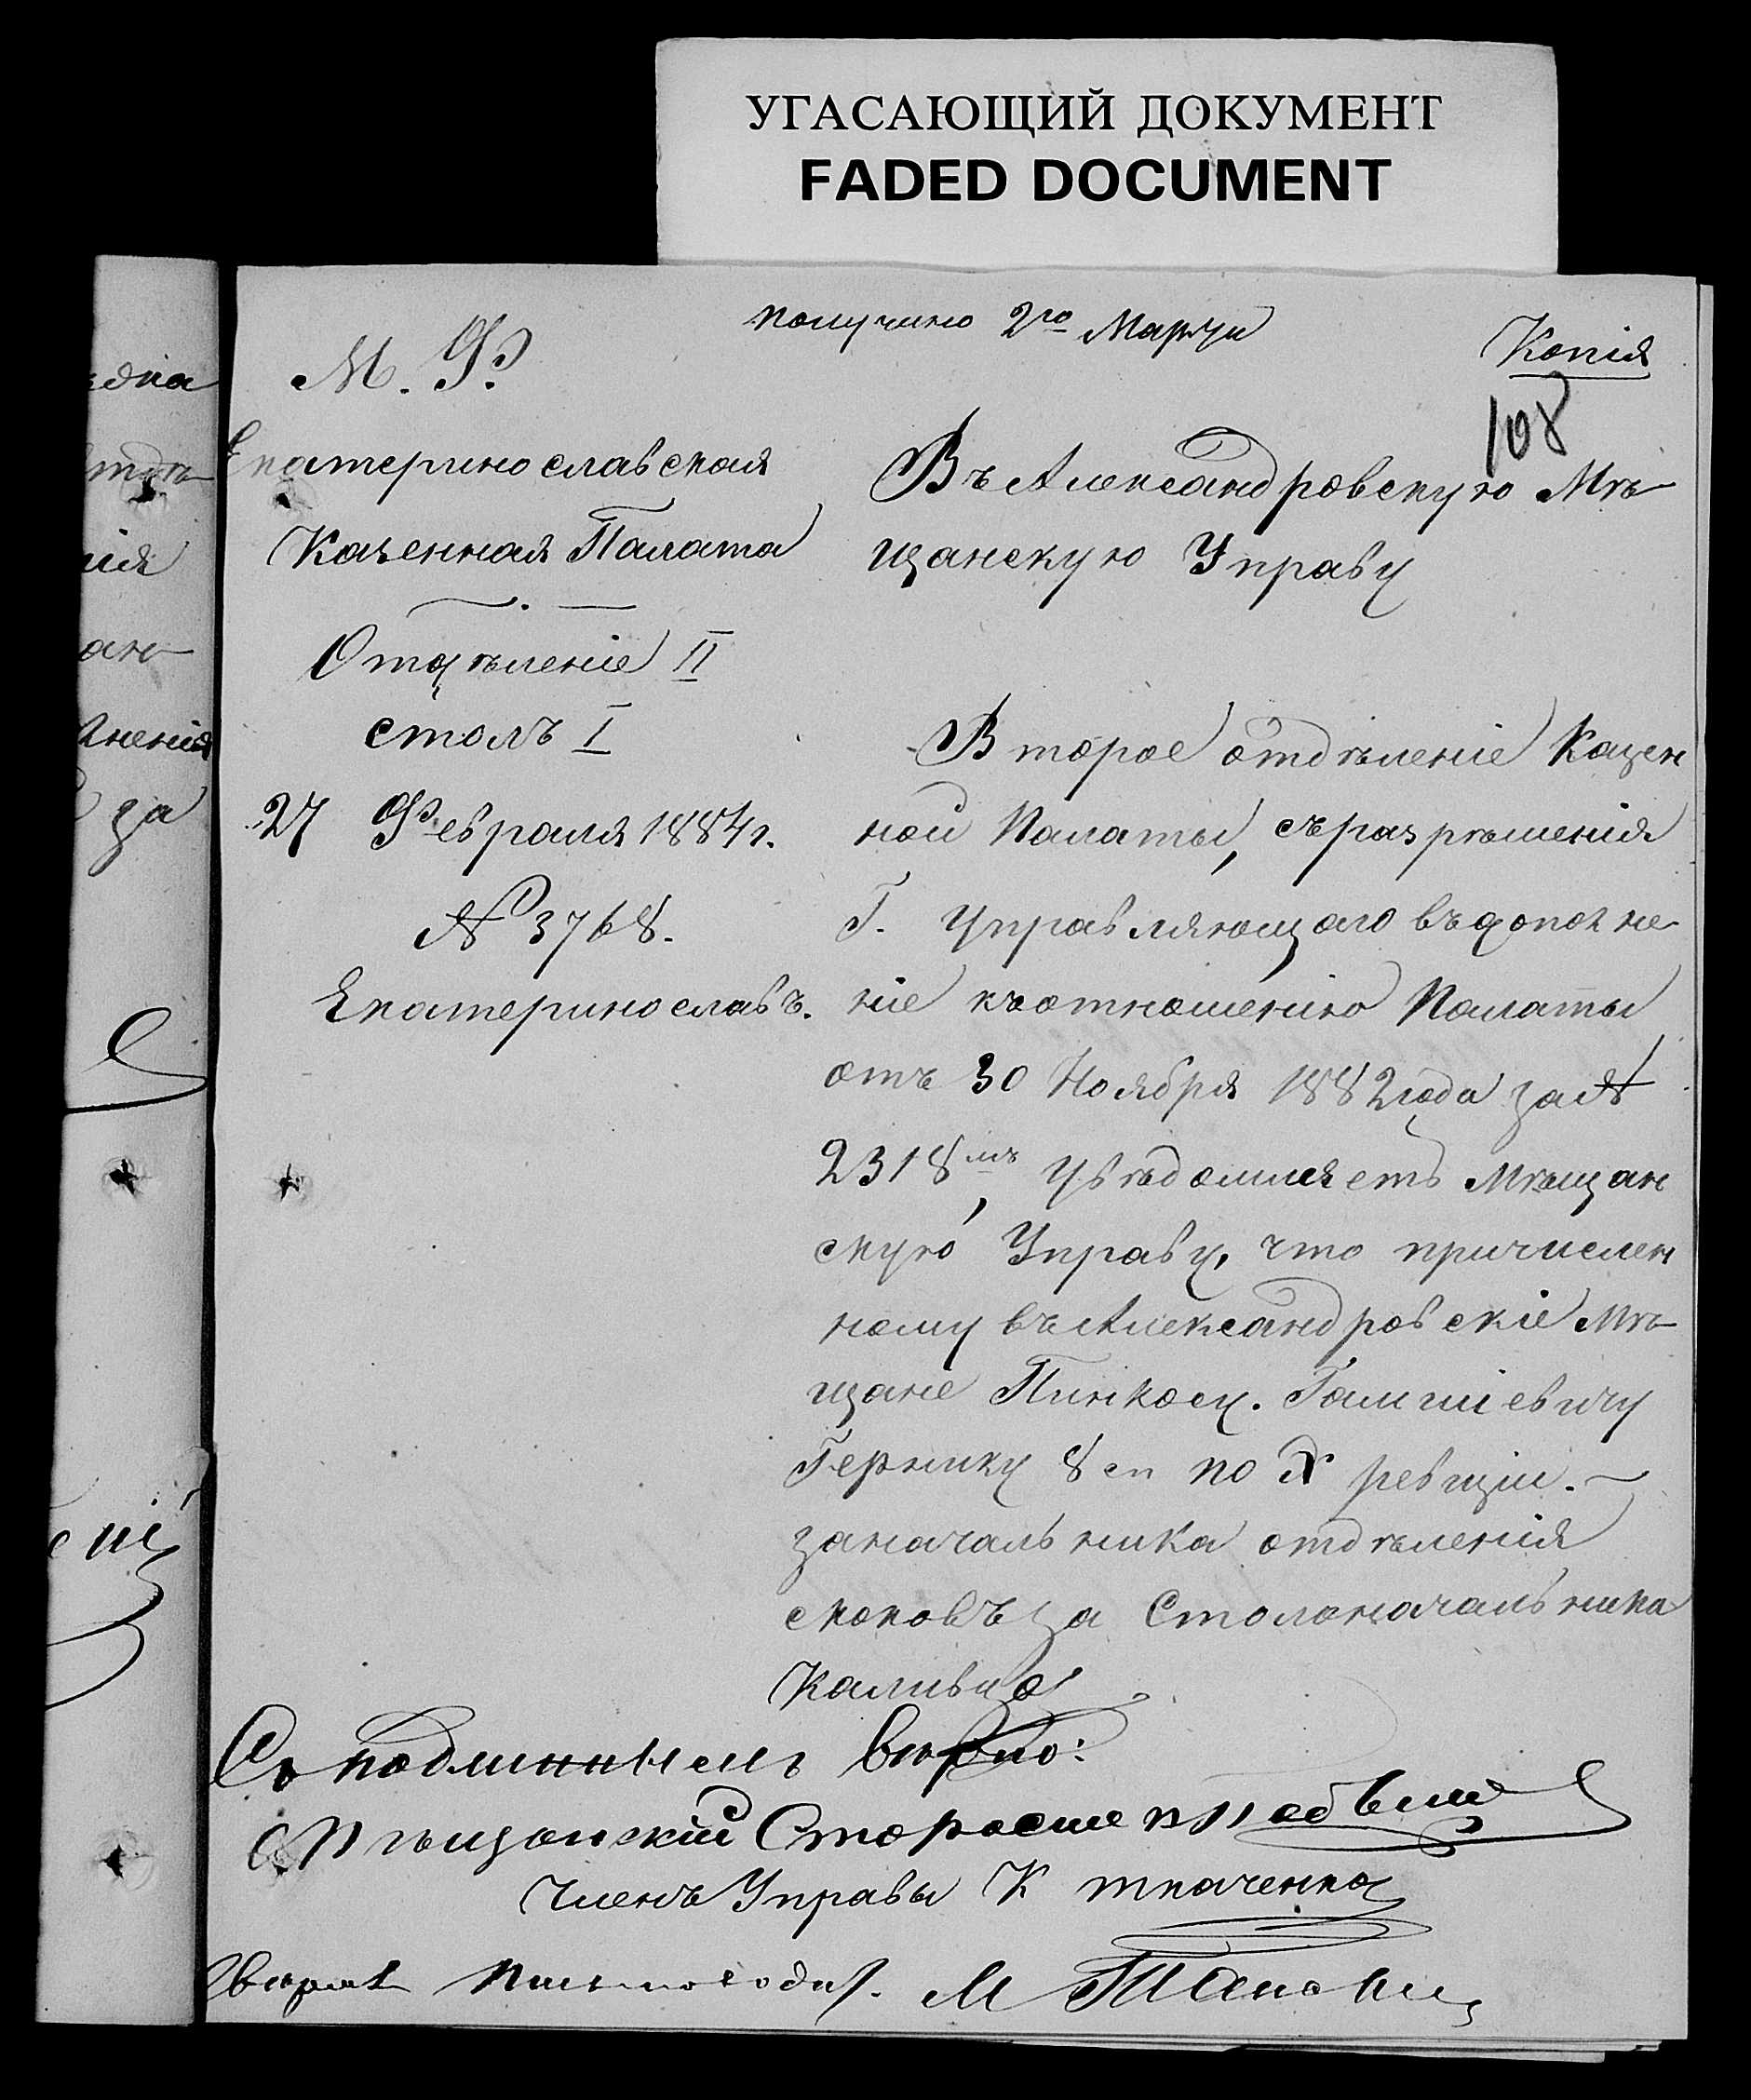 УГАСАЮЩИЙ ДОКУМЕНТ
FADED DOCUMENT
получино 2го Марта
Копія
108
М. Ф.
Екатеринославская
Казенная Палата
Отдѣленіе II
столъ I
27 Февраля 1884 г.
№ 3768.
Екатеринославъ.
Въ Александровскую Мѣ-
щанскую Управу
Второе отдѣленіе Казен
ной Палаты, съ разрѣшенія
Г. Управляющаго въ дополне-
ніе къ отношенію Палаты
отъ 30 Ноября 1882 года за №
2318мъ, увѣдомляетъ Мѣщан
скую Управу, что причислен
ному въ Александровскіе Мѣ-
щане Пинкосу
Гернику 8 по Х ревизіи.
За начальника отдѣленія
за Столоначальника
Съ подлиннымъ вѣрно:
Мѣщанскій Староста
Членъ Управы К Ткаченко
М
ідка
нія
ан-
лненія
за